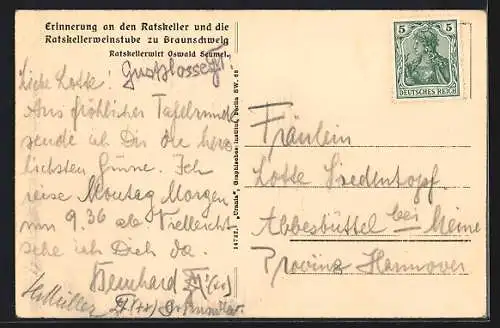 Erinnerung an den Ratskeller und die
Ratskellerweinstube zu Braunschweig
Ratskellerwirt Oswald Seumel.
Liebe Lotte!
Aus fröhlicher Tafelrunde
sende ich Dir die herz-
lichsten Grüsse. Ich
reise Montag Morgen
um 9.36 ab. Vielleicht
sehe ich Dich da.
Bernhard
HMüller
14722. "Urania", Graphisches Institut, Berlin SW. 68
5 5
DEUTSCHES REICH
Fräulein
Lotte Siedentopf
Abbesbüttel bei Meine
Provinz Hannover